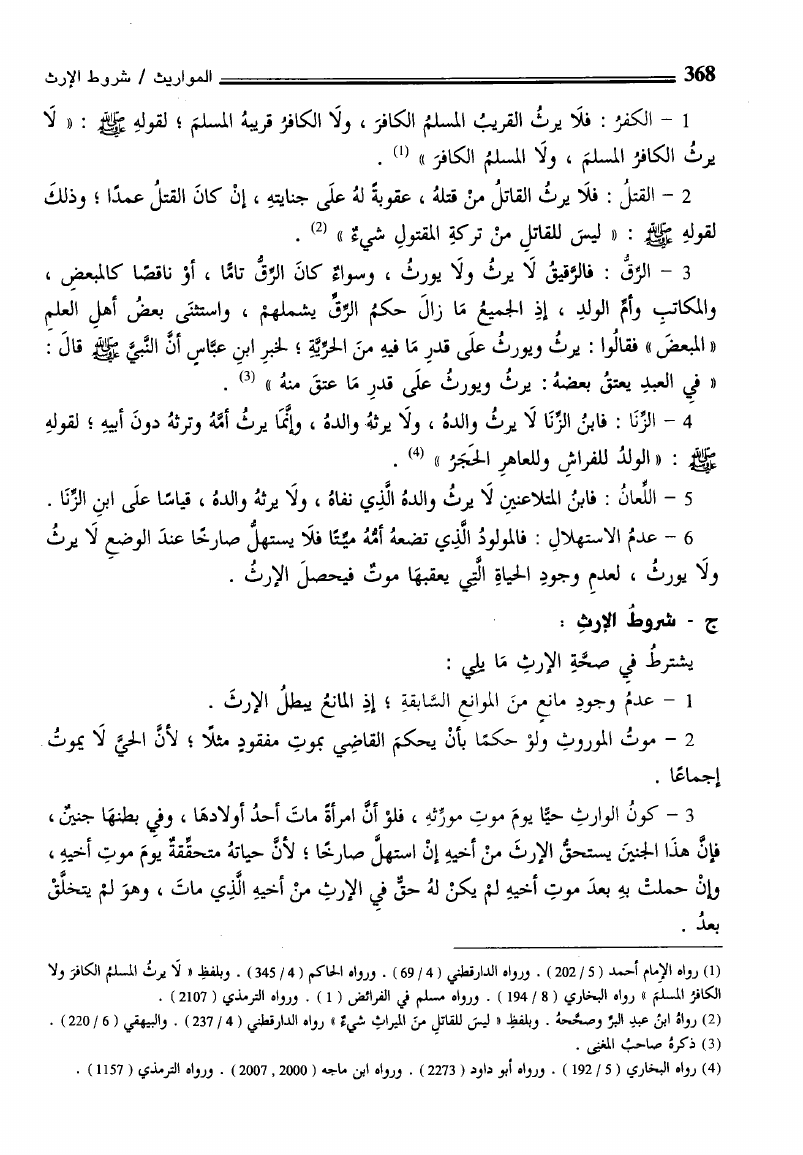 368 المواريث / شروط الإرث
1 - الكفرُ : فلَا يرثُ القريبُ المسلمُ الكافرَ ، ولَا الكافرُ قريبهُ المسلمَ ؛ لقولهِ ﷺ : « لَا
يرثُ الكافرُ المسلمَ ، ولَا المسلمُ الكافرَ » (1) .
2 - القتلُ : فلَا يرثُ القاتلُ منْ قتلهُ ، عقوبةً لهُ علَى جنايتهِ ، إنْ كانَ القتلُ عمدًا ؛ وذلكَ
لقولهِ ﷺ : « ليسَ للقاتلِ منْ تركةِ المقتولِ شيءٌ » (2) .
3 - الرِّقُّ : فالرَّقيقُ لَا يرثُ ولَا يورثُ ، وسواءٌ كانَ الرِّقُّ تامًّا ، أوْ ناقصًا كالمبعضِ ،
والمكاتبِ وأمِّ الولدِ ، إذِ الجميعُ مَا زالَ حكمُ الرِّقِّ يشملهمْ ، واستثنَى بعضُ أهلِ العلمِ
« المبعضَ » فقالُوا : يرثُ ويورثُ علَى قدرِ مَا فيهِ منَ الحرِّيَّةِ ؛ لخبرِ ابنِ عبَّاسٍ أنَّ النَّبيَّ ﷺ قالَ :
« في العبدِ يعتقُ بعضهُ : يرثُ ويورثُ علَى قدرِ مَا عتقَ منهُ » (3) .
4 - الزِّنَا : فابنُ الزِّنَا لَا يرثُ والدهُ ، ولَا يرثهُ والدهُ ، وإنَّمَا يرثُ أمَّهُ وترثهُ دونَ أبيهِ ؛ لقولهِ
ﷺ : « الولدُ للفراشِ وللعاهرِ الحَجَرُ » (4) .
5 - اللِّعانُ : فابنُ المتلاعنينِ لَا يرثُ والدهُ الَّذِي نفاهُ ، ولَا يرثهُ والدهُ ، قياسًا علَى ابنِ الزِّنَا .
6 - عدمُ الاستهلالِ : فالمولودُ الَّذِي تضعهُ أمُّهُ ميِّتًا فلَا يستهلُّ صارخًا عندَ الوضعِ لَا يرثُ
ولَا يورثُ ، لعدمِ وجودِ الحياةِ الَّتِي يعقبهَا موتٌ فيحصلَ الإرثُ .
ج - شروطُ الإرثِ :
يشترطُ فِي صحَّةِ الإرثِ مَا يلِي :
1 - عدمُ وجودِ مانعٍ منَ الموانعِ السَّابقةِ ؛ إذِ المانعُ يبطلُ الإرثَ .
2 - موتُ الموروثِ ولوْ حكمًا بأنْ يحكمَ القاضِي بموتِ مفقودٍ مثلًا ؛ لأنَّ الحيَّ لَا يموتُ
إجماعًا .
3 - كونُ الوارثِ حيًّا يومَ موتِ مورِّثهِ ، فلوْ أنَّ امرأةً ماتَ أحدُ أولادهَا ، وفِي بطنهَا جنينٌ ،
فإنَّ هذَا الجنينَ يستحقُّ الإرثَ منْ أخيهِ إنْ استهلَّ صارخًا ؛ لأنَّ حياتهُ متحقِّقةٌ يومَ موتِ أخيهِ ،
وإنْ حملتْ بهِ بعدَ موتِ أخيهِ لمْ يكنْ لهُ حقٌّ فِي الإرثِ منْ أخيهِ الَّذِي ماتَ ، وهوَ لمْ يتخلَّقْ
بعدُ .
(1) رواه الإمام أحمد ( 5 / 202 ) . ورواه الدارقطني ( 4 / 69 ) . ورواه الحاكم ( 4 / 345 ) . وبلفظ « لَا يرثُ المسلمُ الكافرَ ولا
الكافرُ المسلمَ » رواه البخاري ( 8 / 194 ) . ورواه مسلم في الفرائض ( 1 ) . ورواه الترمذي ( 2107 ) .
(2) رواهُ ابنُ عبدِ البرِّ وصحَّحهُ . وبلفظِ « ليسَ للقاتلِ منَ الميراثِ شيءٌ » رواه الدارقطني ( 4 / 237 ) . والبيهقي ( 6 / 220 ) .
(3) ذكرهُ صاحبُ المغنى .
(4) رواه البخاري ( 5 / 192 ) . ورواه أبو داود ( 2273 ) . ورواه ابن ماجه ( 2000 , 2007 ) . ورواه الترمذي ( 1157 ) .